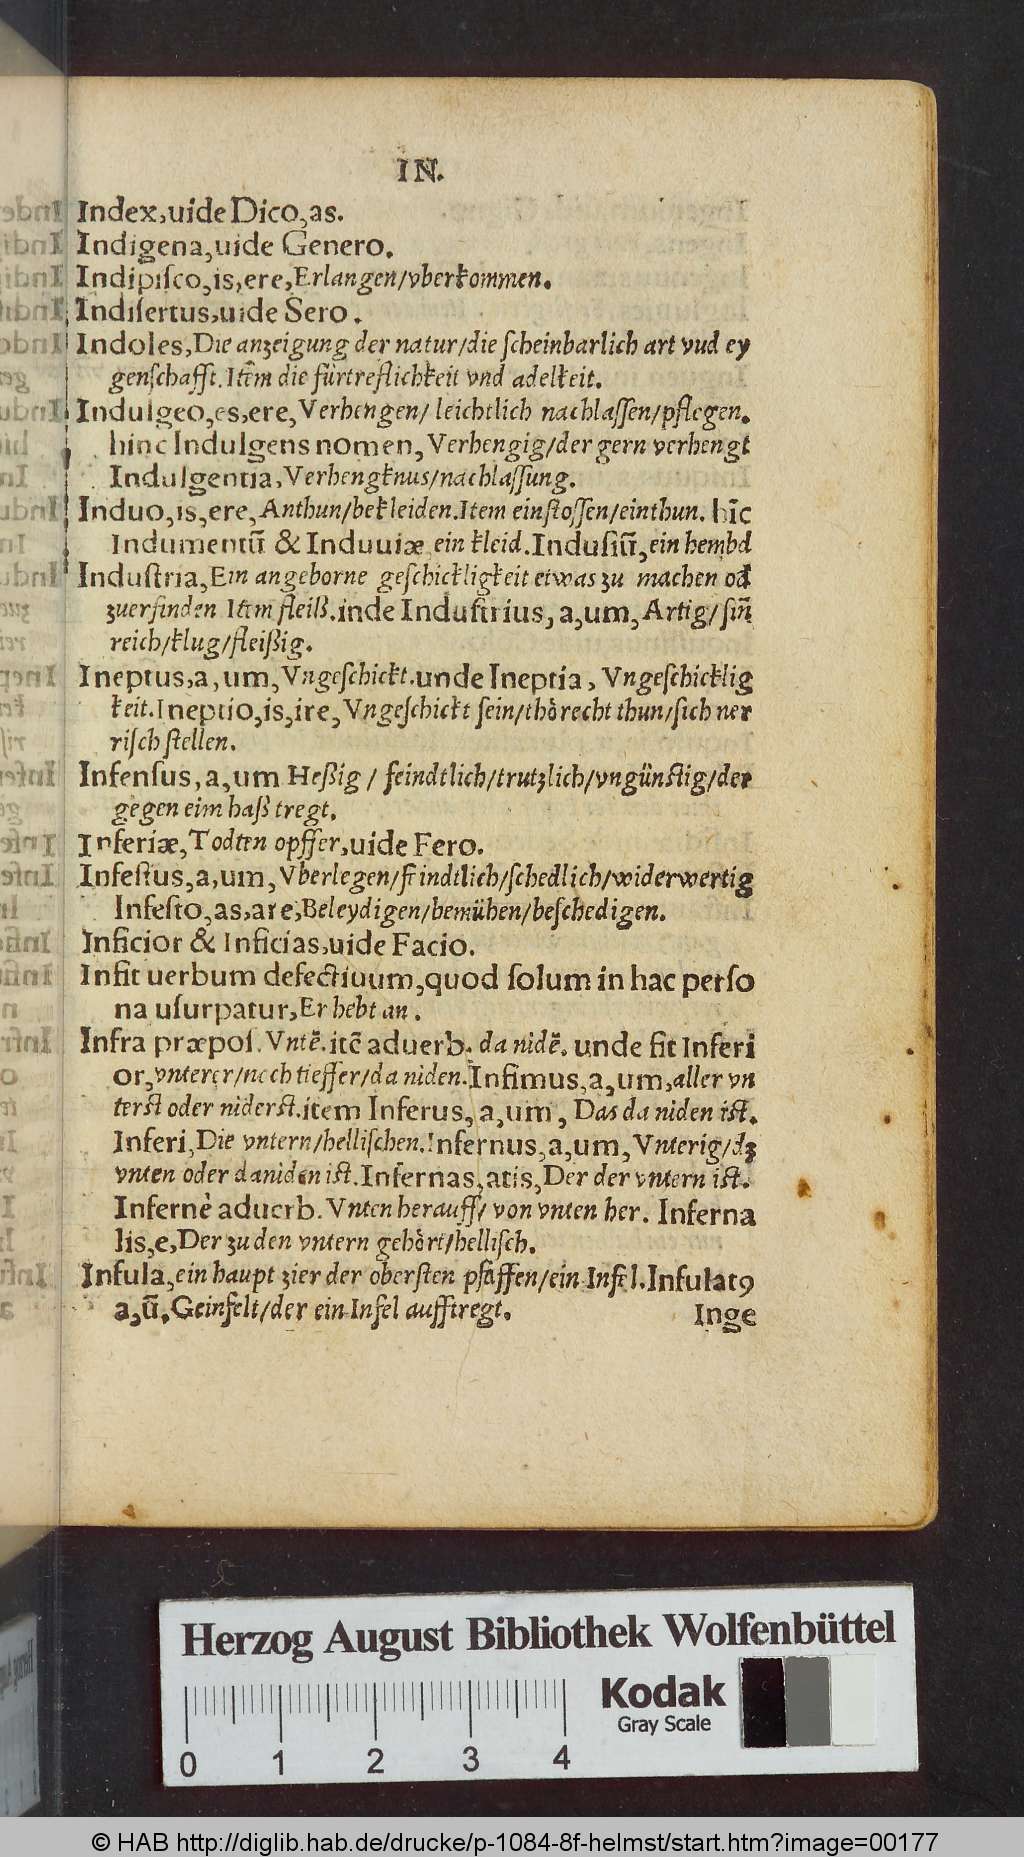 IN.
Index,uide Dico,as.
Indigena,uide Genero.
Indipiſco,is,ere,Erlangen/vberkommen.
Indiſertus,uide Sero.
Indoles,Die anzeigung der natur/die ſcheinbarlich art vud ey
genſchafft.Itẽm die fürtreflichkeit vnd adelkeit.
Indulgeo,es,ere,Verhengen/ leichtlich nachlaſſen/pflegen.
hinc Indulgens nomen, Verhengig/der gern verhengt
Indulgentia,Verhengknus/nachlaſſung.
Induo,is,ere,Anthun/bekleiden.Item einſtoſſen/einthun. hĩc
Indumentũ & Induuiæ ein kleid.Induſiũ,ein hembd
Induſtria,Ein angeborne geſchickligkeit etwas zu machen od
zuerfinden Item fleiß.inde Induſtrius, a,um, Artig/ ſiñ
reich/klug/fleißig.
Ineptus,a,um,Vngeſchickt.unde Ineptia, Vngeſchicklig
keit.Ineptio,is,ire, Vngeſchickt ſein/thörecht thun/ſich ner
riſch ſtellen.
Infenſus,a,um Heßig / feindtlich/trutzlich/vngünſtig/der
gegen eim haß tregt.
Inferiæ,Todten opffer,uide Fero.
Infeſtus,a,um, Vberlegen/feindtlich/ſchedlich/widerwertig
Infeſto,as,are,Beleydigen/bemühen/beſchedigen.
Inficior & Inficias,uide Facio.
Infit uerbum defectiuum,quod ſolum in hac perſo
na uſurpatur,Er hebt an.
Infra præpoſ. Vntẽ.itẽ aduerb. da nidẽ. unde fit Inferi
or,vnterer/noch tieffer/da niden.Infimus,a,um,aller vn
terſt oder niderſt.item Inferus, a,um, Das da niden iſt.
Inferi,Die vntern/helliſchen.Infernus,a,um, Vnterig/dz
vnten oder daniden iſt.Infernas,atis,Der der vntern iſt.
Infernè aduerb. Vnten herauff/ von vnten her. Inferna
lis,e,Der zu den vntern gehört/helliſch.
Infula,ein haupt zier der oberſten pfaffen/ein Infel.Infulatꝰ
a,ũ.Geinfelt/der ein Infel aufftregt.
Inge
Herzog August Bibliothek Wolfenbüttel
Kodak
Gray Scale
0 1 2 3 4
© HAB http://diglib.hab.de/drucke/p-1084-8f-helmst/start.htm?image=00177